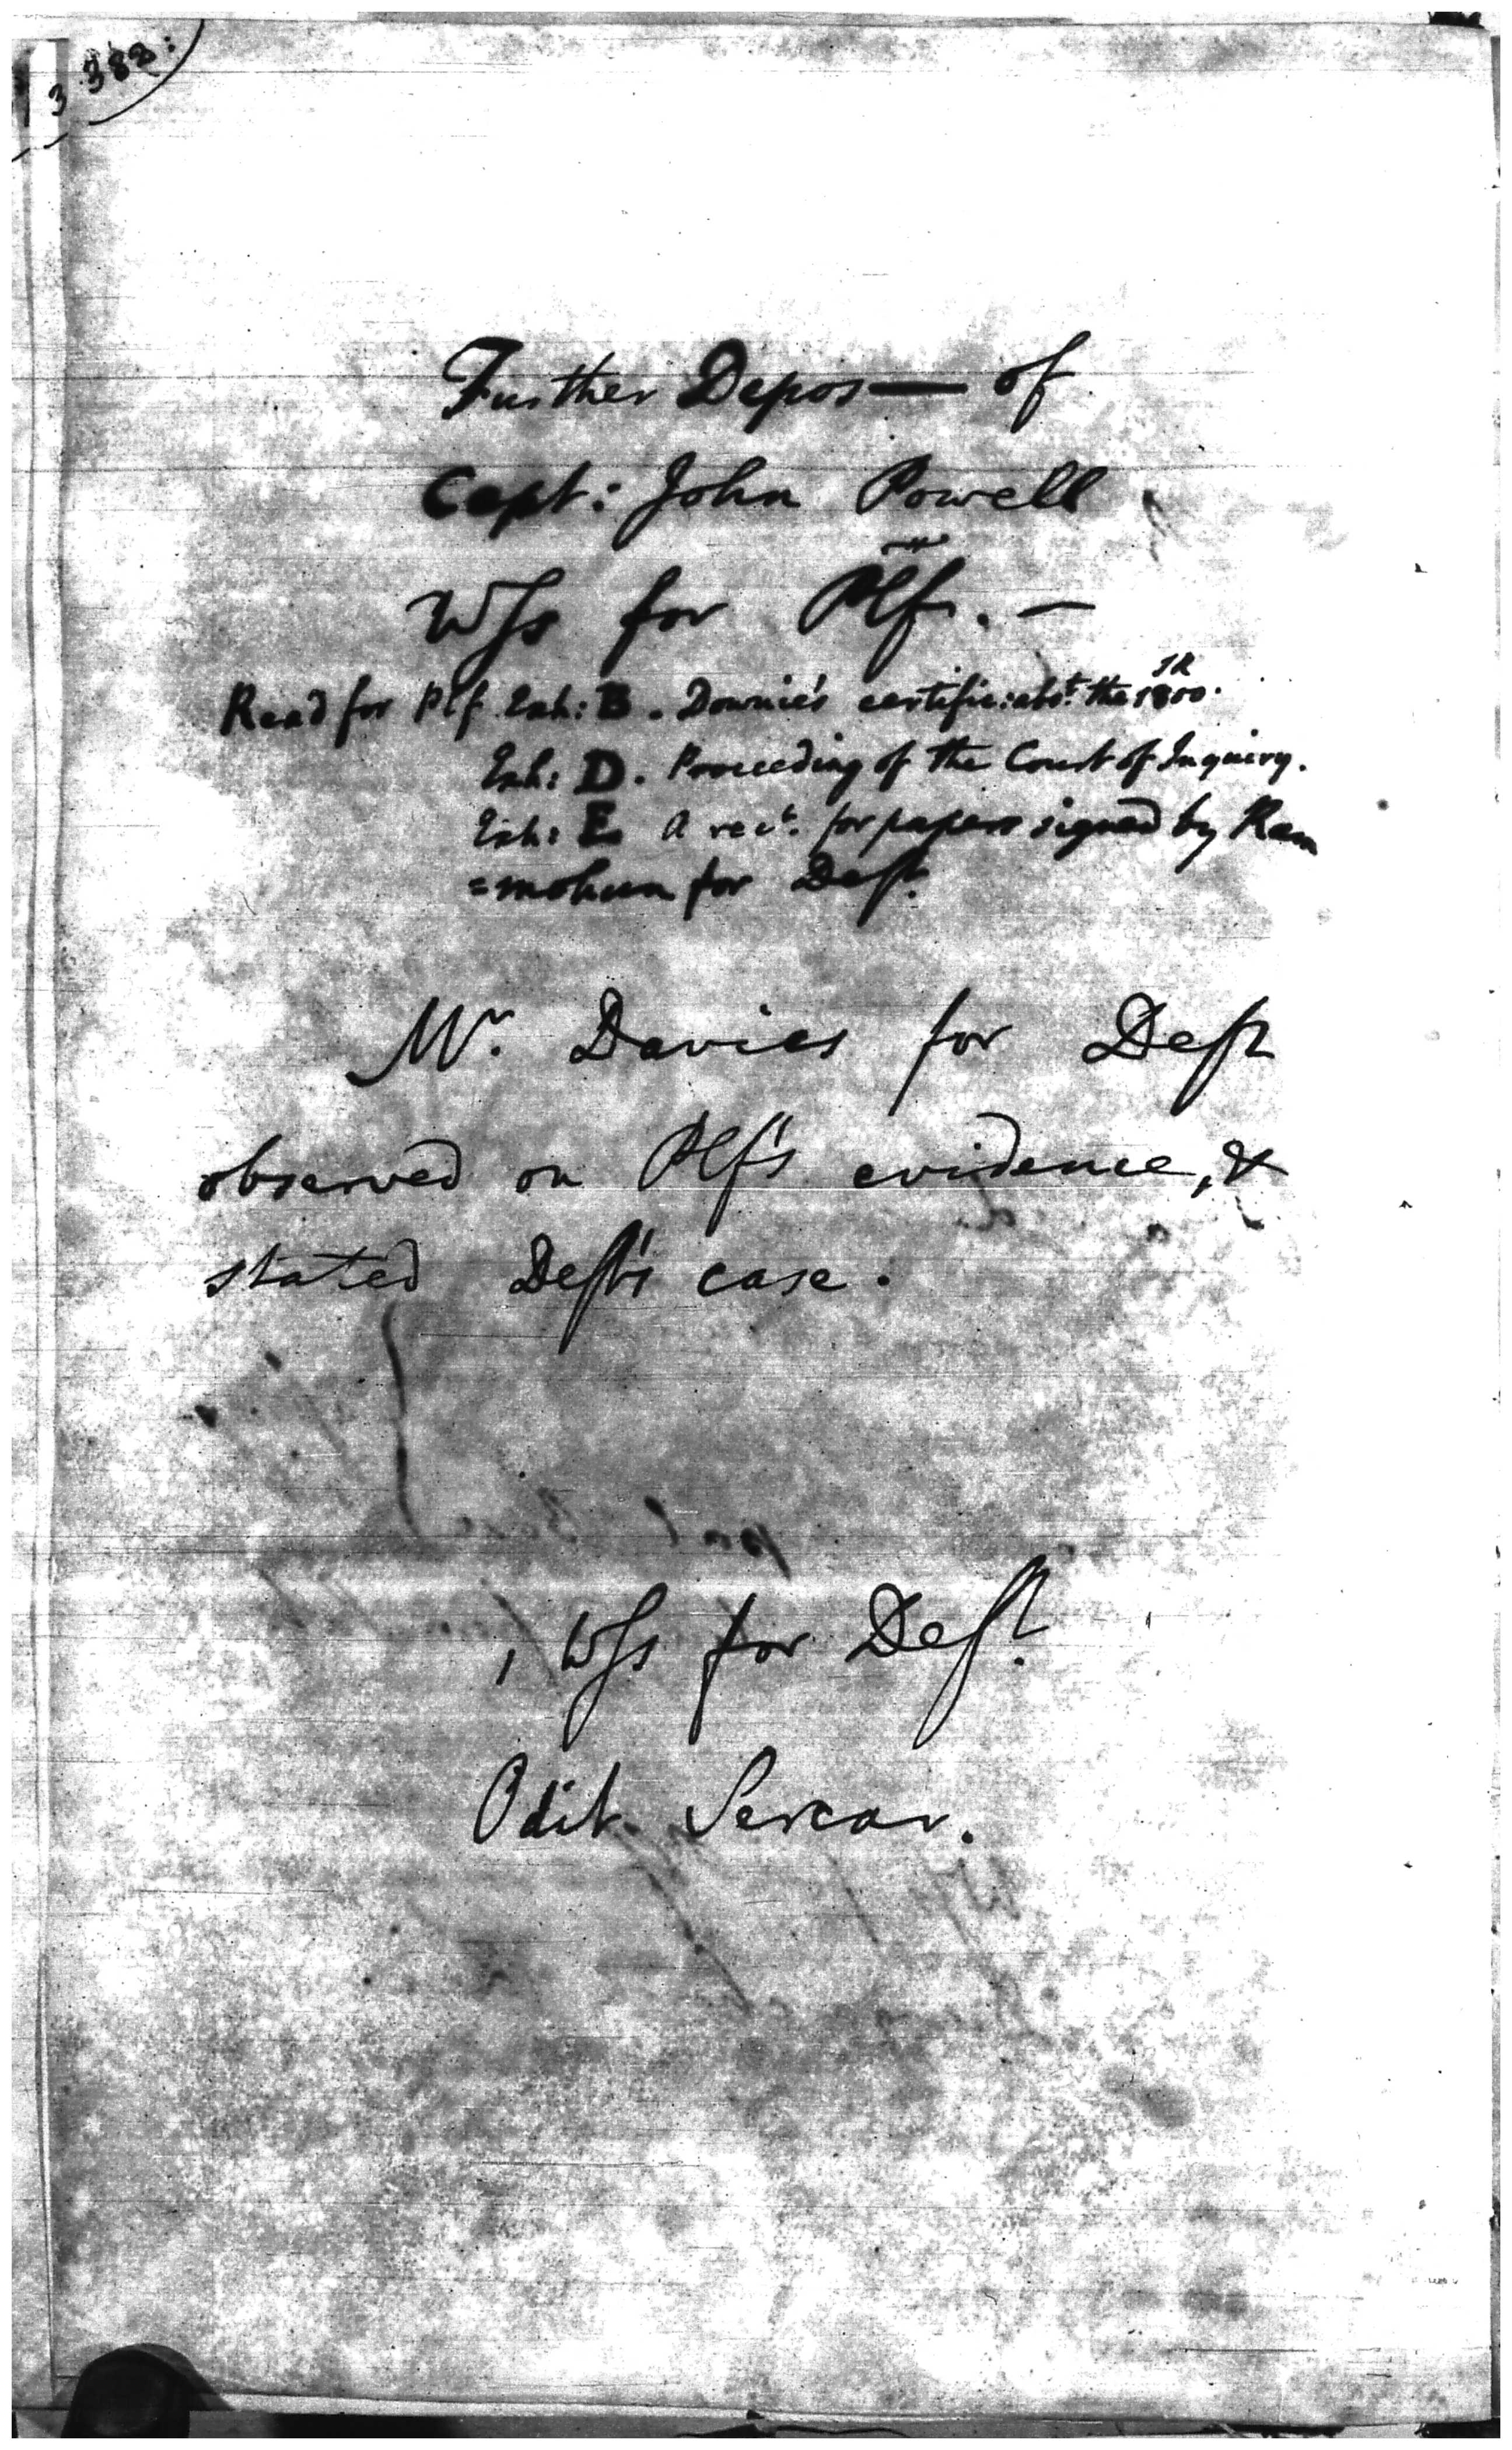 3 382:
Further Depos— of
Capt: John Powell
Wss for Plf. —
Read for Plf. Exh: B. Downie's certific: abt. the SR 1800.
Exh: D. Proceeding of the Court of Inquiry.
Exh: E A rect. for papers signed by Ram
=mohun for Deft.
Mr. Davies for Deft
observed on Plf's evidence, &
stated Deft's case.
1 Wss for Deft.
Odit Sercar.